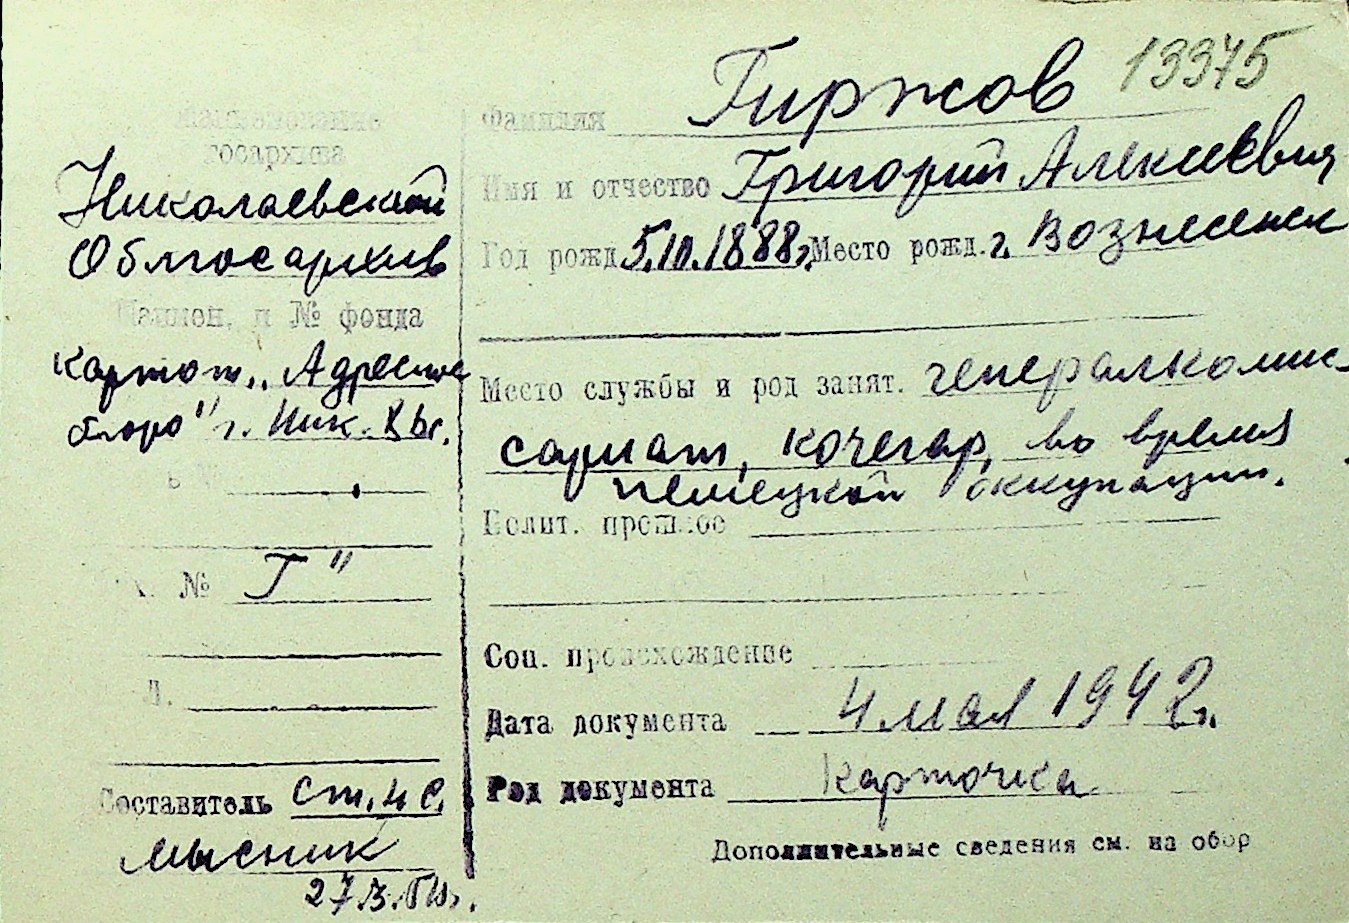 13375
Наименование
госархива
Николаевский
Облгосархив
Наимен. и № фонда
картот. „Адресное
бюро" г. Ник.
№ Г"
Л.
Составитель ст. н с.
Мысник
27.3.51г.
Фамилия Гиржов
Имя и отчество Григорий Алексеевич
Год рожд 5.10.1888г. Место рожд. г. Вознесенск
Место службы и род занят. генералкомис-
сариат, кочегар, во время
немецкой оккупации.
Полит. прошлое
Соц. происхождение
Дата документа 4 мая 1942 г.
Род документа карточка
Дополнительные сведения см. на обор